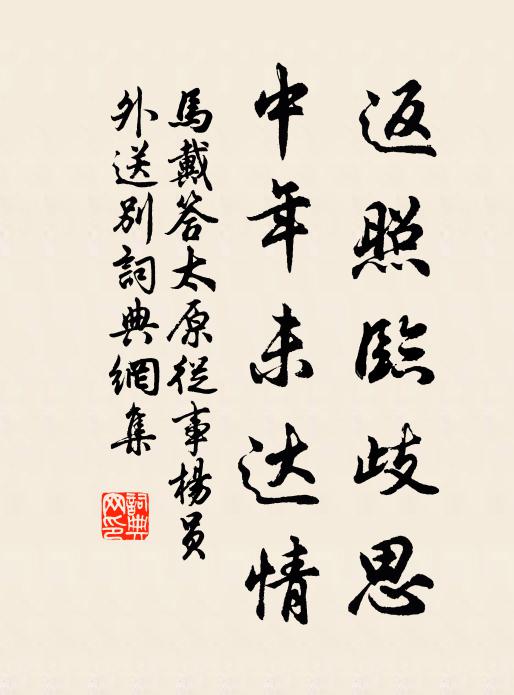 返照臨歧思
中年未达情
馬戴答太原從事楊員
外送別詞典網集
詞典
网印